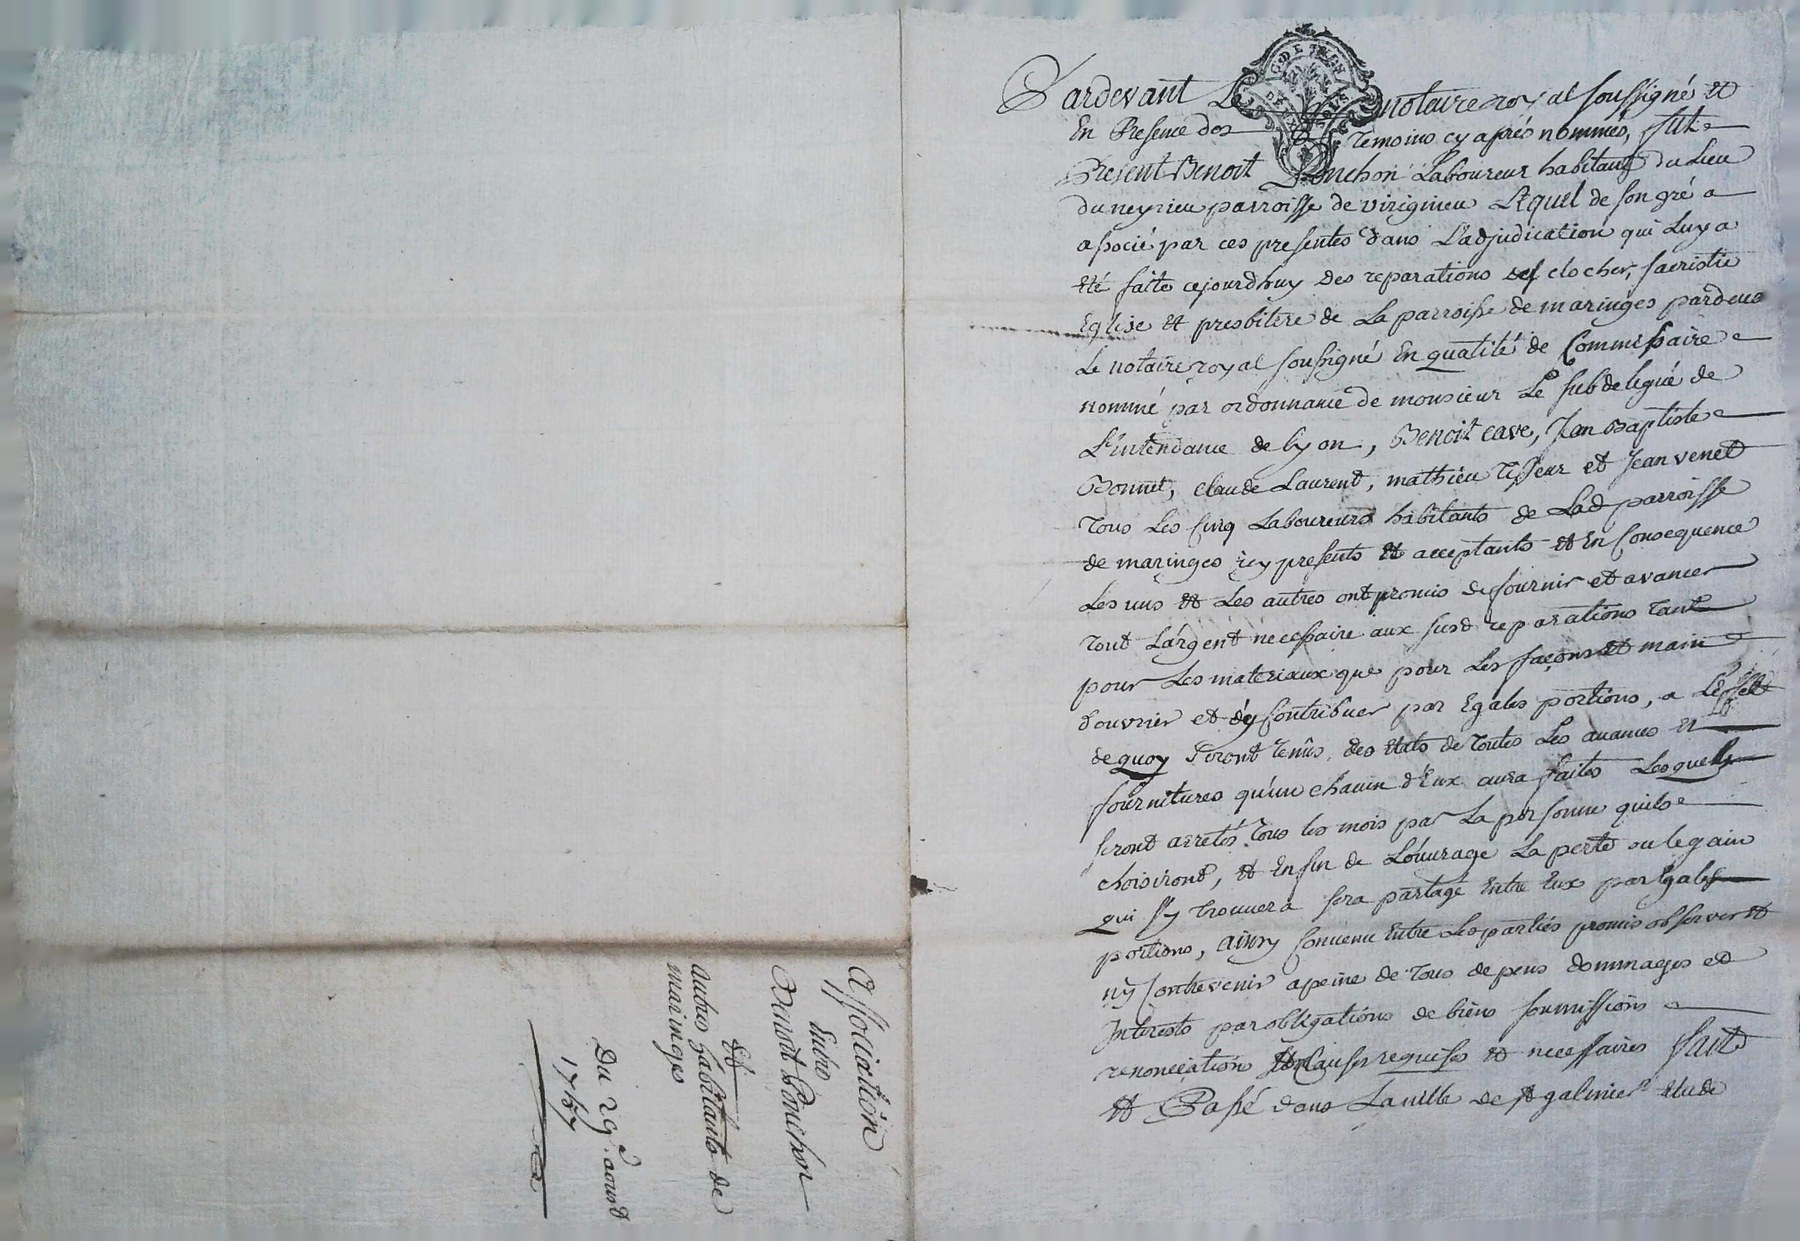 Pardevant Le notaire royal soussigné et
En Presence des temoins cy aprés nommés, fut
Present Benoit Ponchon Laboureur habitant du Lieu
du neyrieu parroisse de virigneu Lequel de son gré a
associé par ces presentes dans L'adjudication qui Luy a
été faite cejourdhuy des reparations des clocher, sacristie
Eglise et presbitere de La parroisse de maringes pardevant
Le notaire royal soussigné En qualité de Commissaire
nommé par ordonnance de monsieur Le subdelegué de
L'intendance de lyon, Benoit cave, Jean Baptiste
Bonnet, claude Laurent, mathieu tisseur et Jean venet
tous Les cinq Laboureurs habitants de Lad parroisse
de maringes icy presents et acceptants et En Consequence
Les uns et Les autres ont promis de fournir et avancer
tout L'argent necessaire aux susd reparations tant
pour Les materiaux que pour Les façons et main
d'ouvrier et d'y Contribuer par Egales portions, a L'effet
de quoy seront tenus des Etats de toutes Les avances et
fournitures qu'un chacun d'Eux aura faites Lesquels
seront arretés tous les mois par La personne quils
choisiront, et En fin de L'ouvrage La perte ou le gain
qui s'y trouvera sera partagé Entre Eux par Egales
portions, ainsy Convenu Entre Les parties promis observer et
ny Contrevenir a peine de tous depens dommages et
Interests par obligations de biens soumissions
renonciations et Clauses requises et necessaires fait
et Passé dans La ville de st galmier Etude
Association
Entre
Benoit Ponchon
et
autres habitants de
maringes
Du 29e. aoust
1767
G. DE LYON